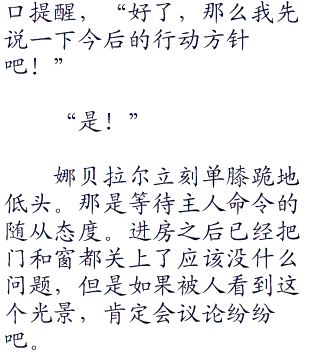 口提醒，“好了，那么我先
说一下今后的行动方针
吧！”
“是！”
娜贝拉尔立刻单膝跪地
低头。那是等待主人命令的
随从态度。进房之后已经把
门和窗都关上了应该没什么
问题，但是如果被人看到这
个光景，肯定会议论纷纷
吧。